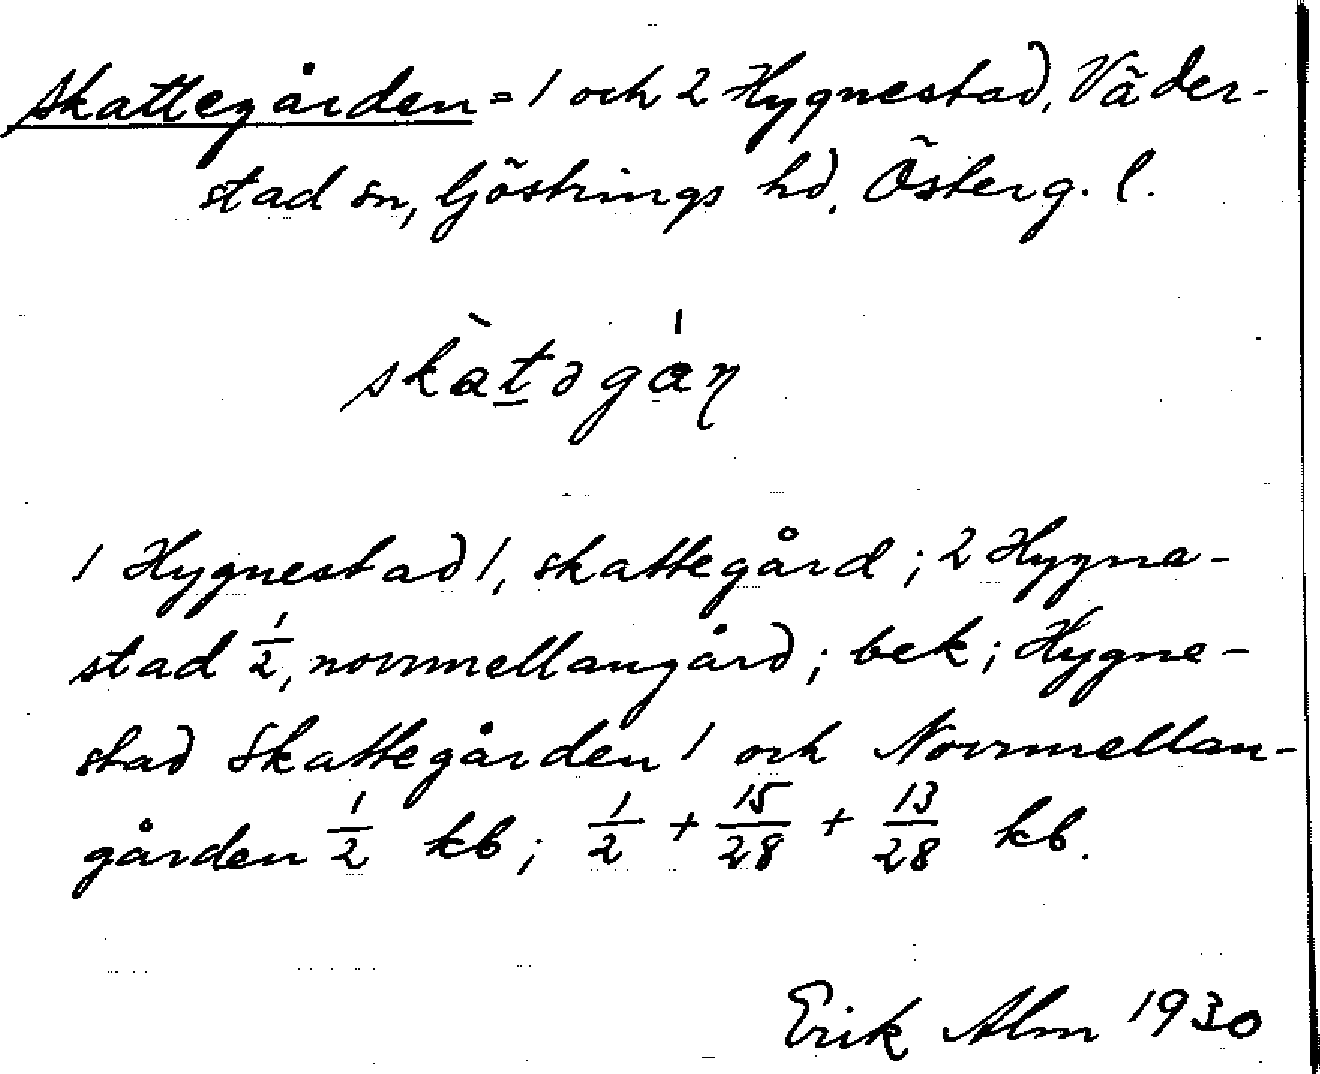 Skattegården = 1 och 2 Hygnestad, Väder-
stad sn, Göstrings hd, Österg. l.
skàt̲əgán
1 Hygnestad 1, skattegård; 2 Hygne-
stad 1/2, norrmellangård; bek; Hygne-
stad Skattegården 1 och Norrmellan-
gården 1/2 kb; 1/2 + 15/28 + 13/28 kb.
Erik Alm 1930